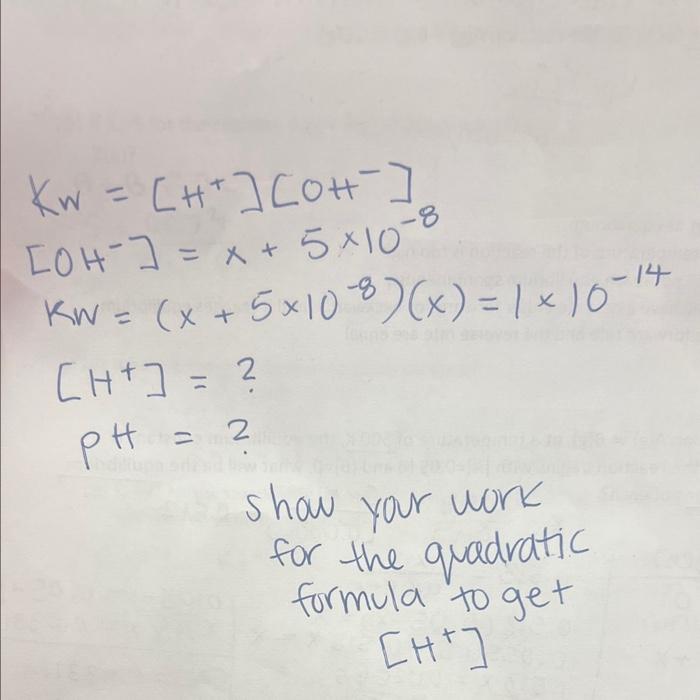 Kw = [H⁺][OH⁻]
[OH⁻] = x + 5×10⁻⁸
Kw = (x + 5×10⁻⁸)(x) = 1×10⁻¹⁴
[H⁺] = ?
pH = ?
show your work
for the quadratic
formula to get
[H⁺]